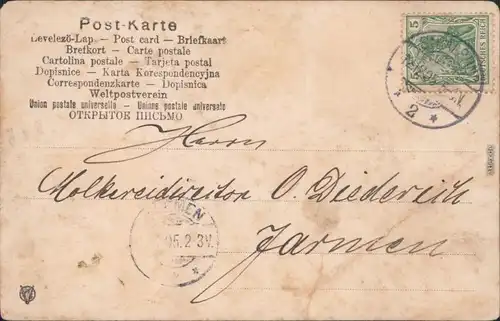 Post-Karte
Levelező-Lap. — Post card — Briefkaart
Brefkort - Carte postale
Cartolina postale - Tarjeta postal
Dopisnice - Karta Korespondencyjna
Correspondenzkarte - Dopisnica
Weltpostverein
Union postale universelle - Unione postale universale
ОТКРЫТОЕ ПИСЬМО
5
DEUTSCHES REICH
* 2 *
Herrn
Molkereidirector O. Diederich
Jarmen
MEN
05. 2-3V.